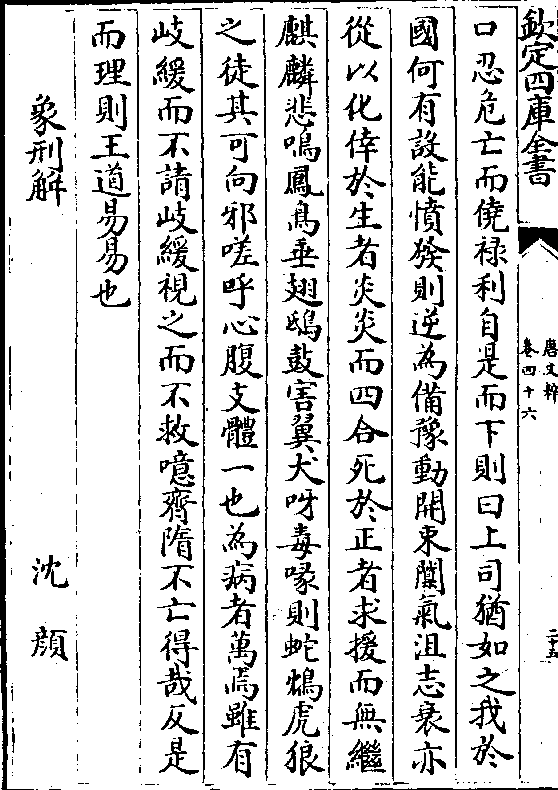 欽定四庫全書
唐文粹
卷四十六
二十五
口忍危亡而僥禄利自是而下則曰上司猶如之我於
國何有設能憤發則逆為備豫動開束闔氣沮志衰亦
從以化倖於生者炎炎而四合死於正者求援而無繼
麒麟悲鳴鳳鳥垂翅鴟鼓害翼犬呀毒喙則蛇鴆虎狼
之徒其可向邪嗟呼心腹支體一也為病者萬焉雖有
岐緩而不請岐緩視之而不救噫齊隋不亡得哉反是
而理則王道易易也
象刑解
沈顔